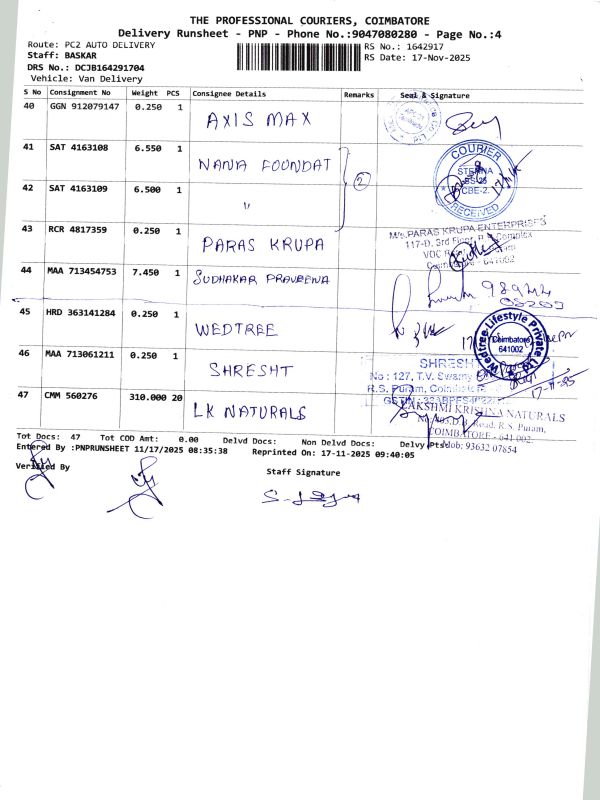 THE PROFESSIONAL COURIERS, COIMBATORE
Delivery Runsheet - PNP - Phone No.:9047080280 - Page No.:4
Route: PC2 AUTO DELIVERY
RS No.: 1642917
Staff: BASKAR
RS Date: 17-Nov-2025
DRS No.: DCJB164291704
Vehicle: Van Delivery
S No Consignment No Weight PCS Consignee Details Remarks Seal & Signature
40 GGN 912079147 0.250 1 AXIS MAX
41 SAT 4163108 6.550 1 NANA FOUNDAT
COURIER
RECEIVED
CBE-2.
42 SAT 4163109 6.500 1 "
2
43 RCR 4817359 0.250 1 PARAS KRUPA
M/s.PARAS KRUPA ENTERPRISES
117-D, 3rd Floor, Complex
VOC
641002
44 MAA 713454753 7.450 1 SUDHAKAR PRAVEENA
98944
45 HRD 363141284 0.250 1 WEDTREE
Wedtree Lifestyle Private Ltd
Coimbatore
641002
46 MAA 713061211 0.250 1 SHRESHT
SHRESHT
No : 127, T.V. Swamy
R.S. Puram,
17-11-25
47 CMM 560276 310.000 20 LK NATURALS
LAKSHMI KRISHNA NATURALS
Road, R.S. Puram,
COIMBATORE - 641 002.
Mob: 93632 07854
Tot Docs: 47 Tot COD Amt: 0.00 Delvd Docs: Non Delvd Docs: Delvy Pts:
Entered By :PNPRUNSHEET 11/17/2025 08:35:38 Reprinted On: 17-11-2025 09:40:05
Verified By
Staff Signature